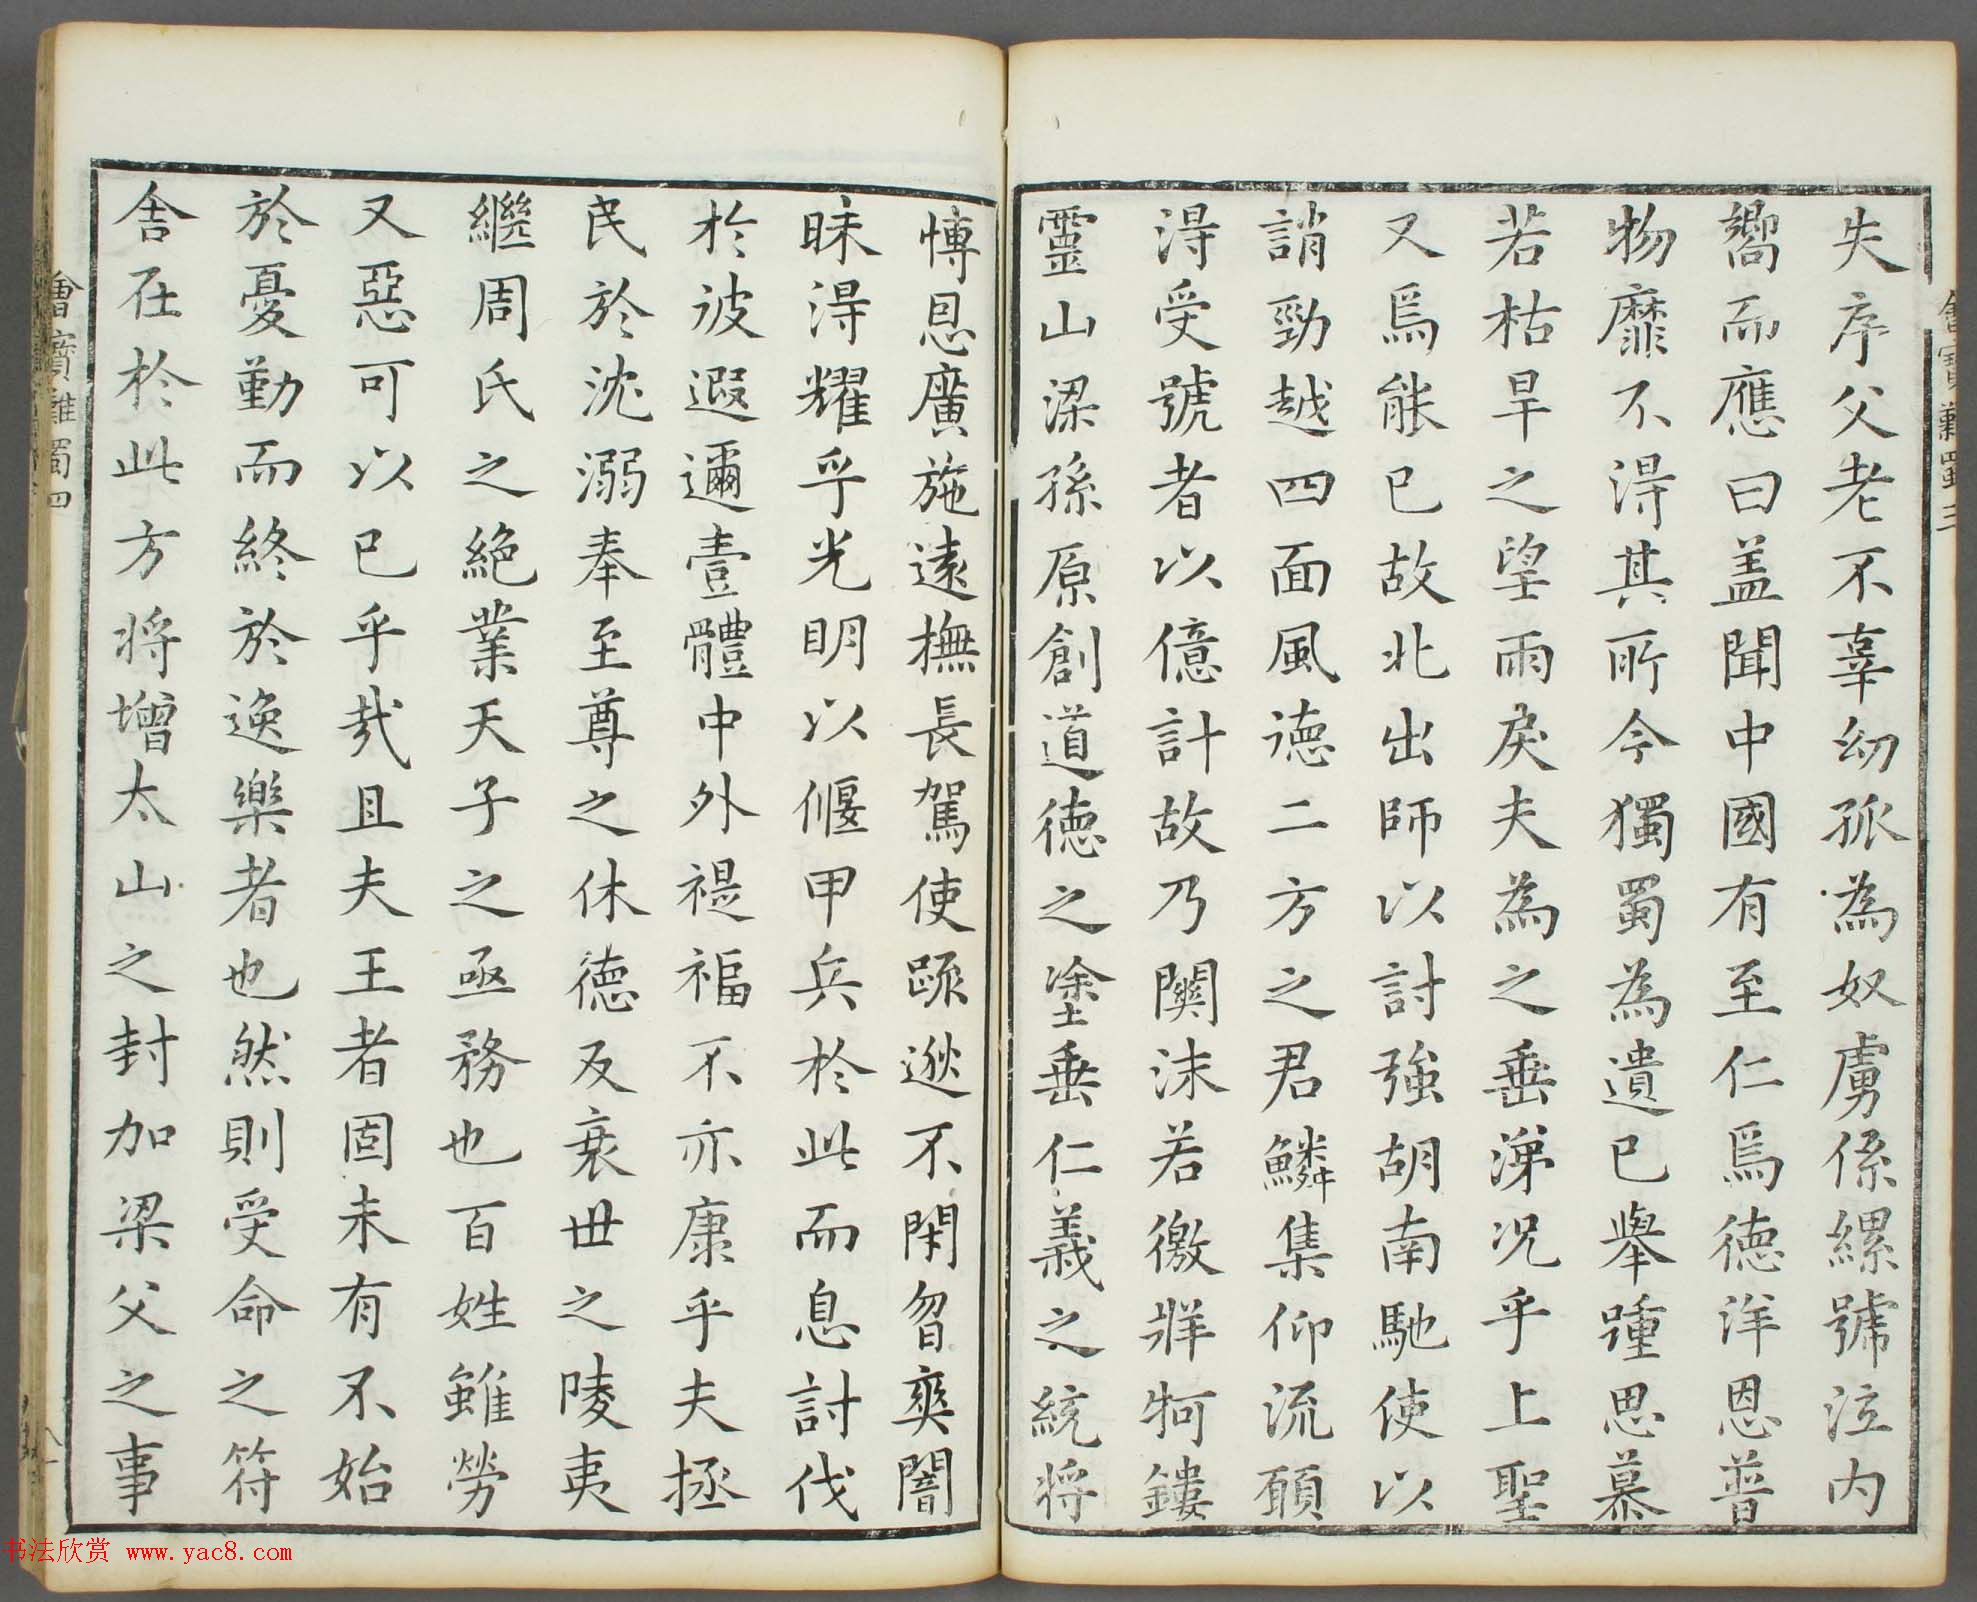 失序父老不辜幼孤為奴虜係縲號泣內
嚮而應曰盖聞中國有至仁焉德洋恩普
物靡不得其所今獨蜀為遺已舉踵思慕
若枯旱之望雨戾夫為之垂涕況乎上聖
又焉能已故北出師以討強胡南馳使以
誚勁越四面風德二方之君鱗集仰流願
得受號者以億計故乃關沫若徼牂牁鏤
靈山梁孫原創道德之塗垂仁義之統將
愽恩廣施遠撫長駕使疏逖不閑曶奭闇
昧得耀乎光明以偃甲兵於此而息討伐
於彼遐邇壹體中外禔福不亦康乎夫拯
民於沈溺奉至尊之休德反衰世之陵夷
繼周氏之絕業天子之亟務也百姓雖勞
又惡可以已乎哉且夫王者固未有不始
於憂勤而終於逸樂者也然則受命之符
舎在於此方將增太山之封加梁父之事
會寳難蜀四
书法欣赏 www.yac8.com